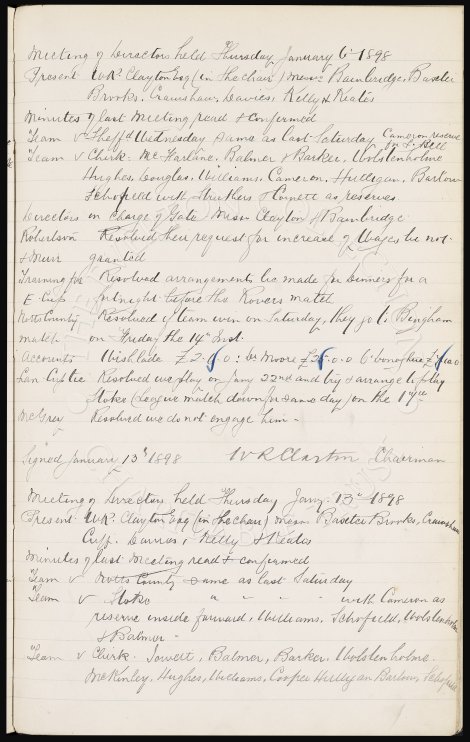 Meeting of Directors held Thursday January 6th 1898
Present W.R. Clayton Esq (in the chair) Messrs Bainbridge, Baxter
Brooks, Crawshaw, Davies, Kelly & Keates
Minutes of last Meeting read & confirmed
Team v Sheffd Wednesday same as last Saturday Cameron reserve
for L. Bell
Team v Chirk. McFarlane, Balmer & Barker, Wolstenholme
Hughes, Douglas, Williams, Cameron, Hulligan, Barlow
Schofield with Struthers & Cornett as reserves
Directors in charge of Gate Messrs Clayton & Bainbridge
Robertson Resolved their request for increase of Wages be not
& Muir granted
Training for Resolved arrangements be made for dinners for a
E. Cup fortnight before the Rovers match
Notts County Resolved if team win on Saturday, they go to Bingham
match on Friday the 14th Inst.
Accounts £2. 0: Dr Moore £ 0.0
Lan Cup tie Resolved we play on Jany 22nd and try & arrange to play
Stoke (League match down for same day) on the
McGrey Resolved we do not engage him -
Signed January 13th 1898 W R Clayton Chairman
Meeting of Directors held Thursday Jany 13th 1898
Present W.R. Clayton Esq (in the chair) Messrs Baxter Brooks, Crawshaw
Cuff, Davies, Kelly & Keates
Minutes of last Meeting read & confirmed
Team v Notts County same as last Saturday
Team v Stoke " " " " with Cameron as
reserve inside forward, Williams, Schofield, Wolstenholme
& Balmer -
Team v Chirk. Jowett, Balmer, Barker, Wolstenholme
McKinley, Hughes, Williams, Cooper Hulligan Barlow, Schofield